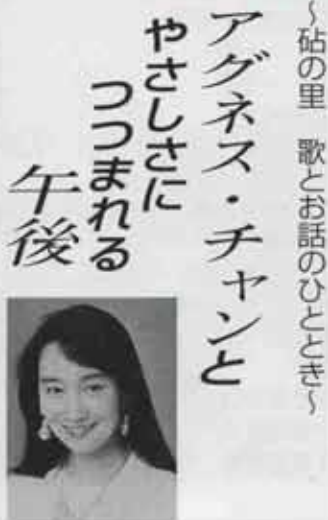 ～砧の里　歌とお話のひととき～
アグネス・チャンと
やさしさに
つつまれる
午後